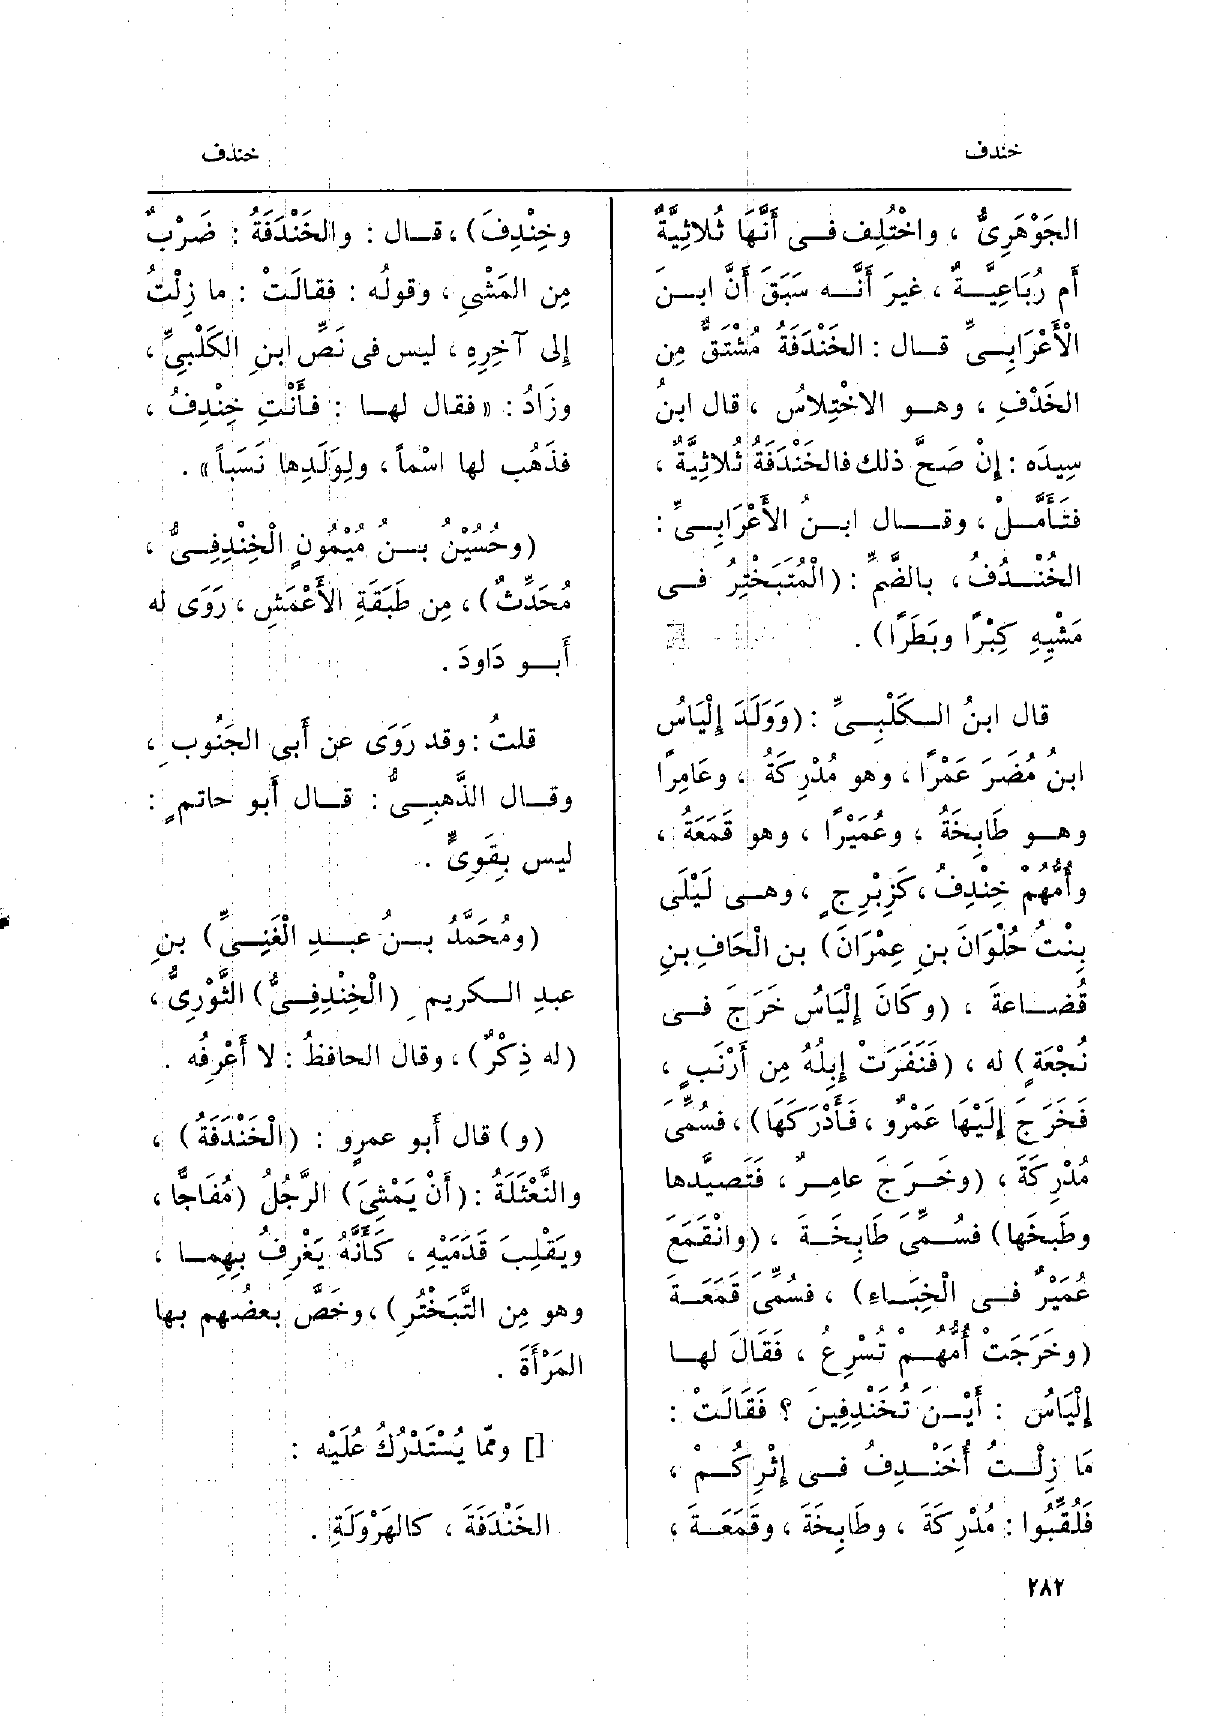 خندف
خندف
الجَوْهَرِىُّ ، واخْتُلِف فى أَنَّهَا ثُلاثِيَّةٌ
أم رُبَاعِيَّةٌ ، غيرَ أَنَّه سَبَقَ أَنَّ ابن
الْأَعْرَابِىِّ قال : الخَنْدَفَةُ مُشْتَقٌّ مِن
الخَدْفِ ، وهو الاخْتِلاسُ ، قال ابنُ
سِيدَه : إنْ صَحَّ ذلك فالخَنْدَفَةُ ثُلاثِيَّةٌ ،
فتَأَمَّلْ ، وقال ابنُ الأَعْرَابِىِّ :
الخُنْدُفُ ، بالضَّمِّ : (الْمُتَبَخْتِرُ فى
مَشْيِهِ كِبْرًا وبَطَرًا) .
قال ابنُ الكَلْبِىِّ : (وَوَلَدَ إِلْيَاسُ
ابنُ مُضَرَ عَمْرًا ، وهو مُدْرِكَةُ ، وعَامِرًا
وهو طَابِخَةُ ، وعُمَيْرًا ، وهو قَمَعَةُ ،
وأُمُّهُمْ خِنْدِفُ ، كَزِبْرِجٍ ، وهى لَيْلَى
بِنْتُ حُلْوَانَ بنِ عِمْرَانَ) بن الْحَافِ بنِ
قُضاعةَ ، (وكَانَ إِلْيَاسُ خَرَجَ فى
نُجْعَةٍ) له ، (فَنَفَرَتْ إِبِلُهُ مِن أَرْنَبٍ ،
فَخَرَجَ إِلَيْهَا عَمْرٌو ، فَأَدْرَكَهَا) ، فسُمِّىَ
مُدْرِكَةَ ، (وخَرَجَ عامِرٌ ، فَتَصَيَّدها
وطَبَخَها) فسُمِّىَ طَابِخَةَ ، (وانْقَمَعَ
عُمَيْرٌ فى الْخِبَاءِ) ، فسُمِّىَ قَمَعَةَ
(وخَرَجَتْ أُمُّهُمْ تُسْرِعُ ، فَقَالَ لها
إِلْيَاسُ : أَيْنَ تُخَنْدِفِينَ ؟ فَقَالَتْ :
مَا زِلْتُ أُخَنْدِفُ فى إِثْرِكُمْ ،
فَلُقِّبُوا : مُدْرِكَةَ ، وطَابِخَةَ ، وقَمَعَةَ ،
وخِنْدِفَ) ، قال : والخَنْدَفَةُ : ضَرْبٌ
مِن المَشْىِ ، وقولُه : فقالَتْ : ما زِلْتُ
إلى آخِرِهِ ، ليس فى نَصِّ ابنِ الكَلْبِىِّ ،
وزَادُ : « فقال لها : فأَنْتِ خِنْدِفُ ،
فذَهُب لها اسْماً ، ولِوَلَدِها نَسَباً » .
(وحُسَيْنُ بنُ مَيْمُونٍ الْخِنْدِفِىُّ ،
مُحَدِّثٌ) ، مِن طَبَقَةِ الأَعْمَشِ ، رَوَى له
أَبو دَاودَ .
قلتُ : وقد رَوَى عن أَبى الجَنُوبِ ،
وقال الذَّهبىُّ : قال أَبو حاتمٍ :
ليس بِقَوِىٍّ .
(ومُحَمَّدُ بنُ عبدِ الْغَنِىِّ) بنِ
عبدِ الكريمِ (الْخِنْدِفِىُّ) الثَّوْرِىُّ ،
(له ذِكْرٌ) ، وقال الحافظُ : لا أَعْرِفُه .
(و) قال أَبو عمرٍو : (الْخَنْدَفَةُ) ،
والنَّعْثَلَةُ : (أَنْ يَمْشِىَ) الرَّجُلُ (مُفَاجًّا ،
ويَقْلِبَ قَدَمَيْهِ ، كَأَنَّهُ يَغْرِفُ بِهِما ،
وهو مِن التَّبَخْتُرِ) ، وخَصَّ بعضُهم بها
المَرْأَةَ .
[] وممّا يُسْتَدْرَكُ عَلَيْه :
الخَنْدَفَة ، كالهَرْوَلَةِ .
٢٨٢